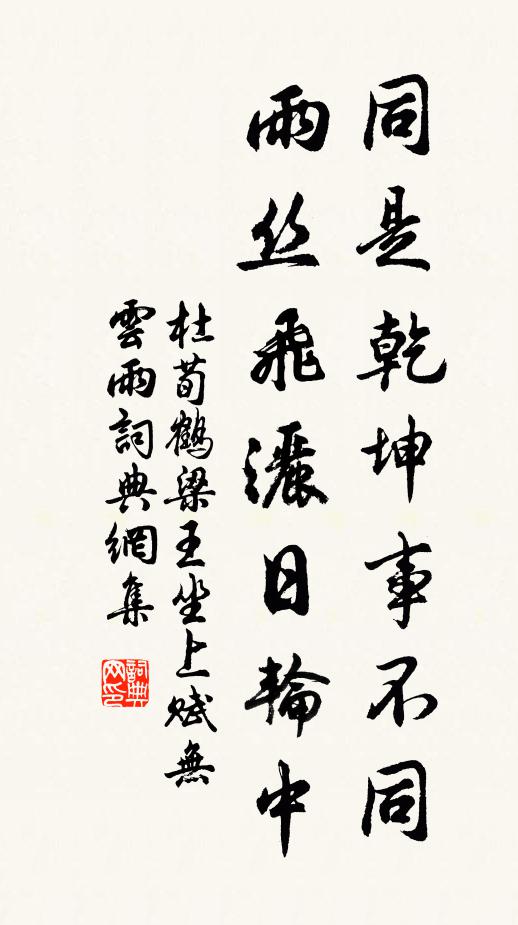 同是乾坤事不同
雨丝飛灑日輪中
杜荀鶴梁王坐上賦無
雲雨詞典網集
詞典网印